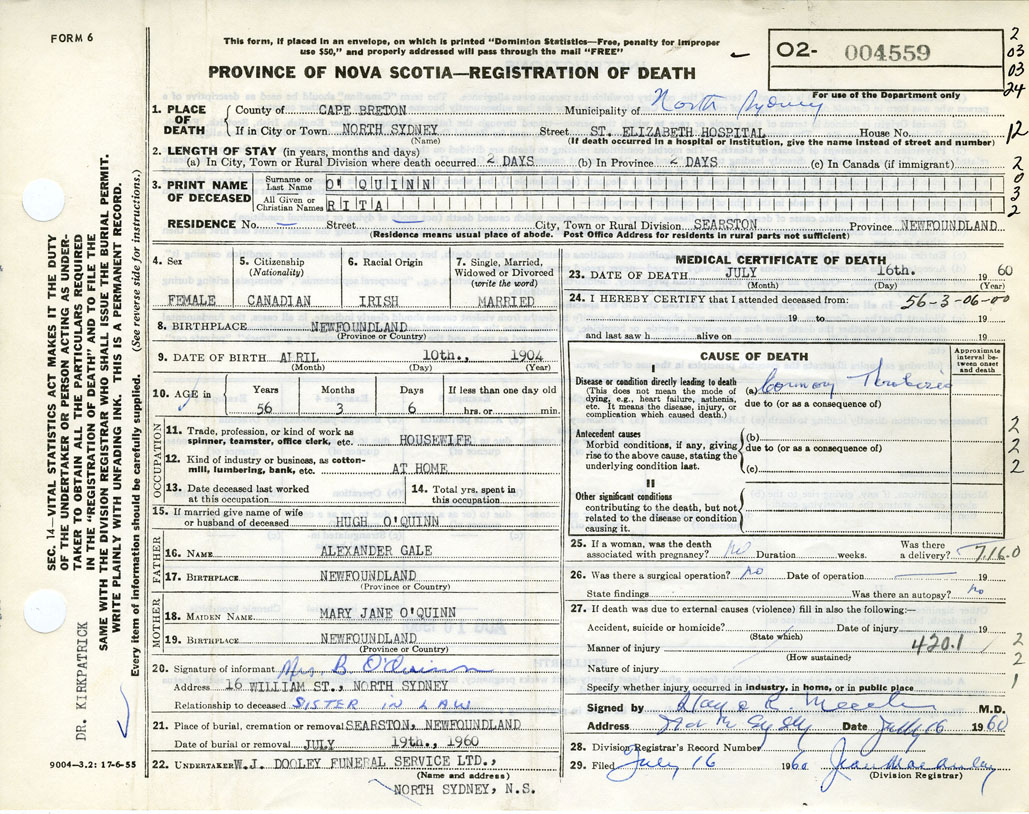 FORM 6
This form, if placed in an envelope, on which is printed "Dominion Statistics—Free, penalty for improper
use $50," and properly addressed will pass through the mail "FREE"
O2- 004559
2
03
03
24
PROVINCE OF NOVA SCOTIA—REGISTRATION OF DEATH
For use of the Department only
1. PLACE OF DEATH
County of CAPE BRETON Municipality of North Sydney
If in City or Town NORTH SYDNEY Street ST. ELIZABETH HOSPITAL House No.
(Name) (If death occurred in a hospital or institution, give the name instead of street and number)
12
2. LENGTH OF STAY (in years, months and days)
(a) In City, Town or Rural Division where death occurred 2 DAYS (b) In Province 2 DAYS (c) In Canada (if immigrant)
2
0
3
2
3. PRINT NAME OF DECEASED
Surname or Last Name O' QUINN
All Given or Christian Names RITA
RESIDENCE No. — Street — City, Town or Rural Division SEARSTON Province NEWFOUNDLAND
(Residence means usual place of abode. Post Office Address for residents in rural parts not sufficient)
4. Sex
FEMALE
5. Citizenship
(Nationality)
CANADIAN
6. Racial Origin
IRISH
7. Single, Married,
Widowed or Divorced
(write the word)
MARRIED
8. BIRTHPLACE NEWFOUNDLAND
(Province or Country)
9. DATE OF BIRTH APRIL 10th., 1904
(Month) (Day) (Year)
10. AGE in
Years Months Days If less than one day old
56 3 6 hrs. or min.
OCCUPATION
11. Trade, profession, or kind of work as
spinner, teamster, office clerk, etc. HOUSEWIFE
12. Kind of industry or business, as cotton-
mill, lumbering, bank, etc. AT HOME
13. Date deceased last worked
at this occupation
14. Total yrs. spent in
this occupation
15. If married give name of wife
or husband of deceased HUGH O'QUINN
FATHER
16. NAME ALEXANDER GALE
17. BIRTHPLACE NEWFOUNDLAND
(Province or Country)
MOTHER
18. MAIDEN NAME MARY JANE O'QUINN
19. BIRTHPLACE NEWFOUNDLAND
(Province or Country)
20. Signature of informant Mrs. B O'Quinn
Address 16 WILLIAM ST., NORTH SYDNEY
Relationship to deceased SISTER IN LAW
21. Place of burial, cremation or removal SEARSTON, NEWFOUNDLAND
Date of burial or removal JULY 19th., 1960
22. UNDERTAKER W.J. DOOLEY FUNERAL SERVICE LTD.,
(Name and address)
NORTH SYDNEY, N.S.
MEDICAL CERTIFICATE OF DEATH
23. DATE OF DEATH JULY 16th. 1960
(Month) (Day) (Year)
24. I HEREBY CERTIFY that I attended deceased from: 56-3-06-00
19 to 19
and last saw h alive on 19
CAUSE OF DEATH
Approximate
interval be-
tween onset
and death
I
Disease or condition directly leading to death
(This does not mean the mode of
dying, e.g., heart failure, asthenia,
etc. It means the disease, injury, or
complication which caused death.)
(a)
due to (or as a consequence of)
Antecedent causes
Morbid conditions, if any, giving
rise to the above cause, stating the
underlying condition last.
(b)
due to (or as a consequence of)
(c)
2
2
2
II
Other significant conditions
contributing to the death, but not
related to the disease or condition
causing it.
25. If a woman, was the death
associated with pregnancy? no Duration weeks. Was there
a delivery? 716.0
26. Was there a surgical operation? no Date of operation — 19
State findings Was there an autopsy? no
27. If death was due to external causes (violence) fill in also the following:—
Accident, suicide or homicide? Date of injury 19
(State which)
Manner of injury 420.1
(How sustained)
Nature of injury
2
2
1
Specify whether injury occurred in industry, in home, or in public place
Signed by M.D.
Address Date July 16 1960
28. Division Registrar's Record Number
29. Filed July 16 1960
(Division Registrar)
SEC. 14—VITAL STATISTICS ACT MAKES IT THE DUTY
OF THE UNDERTAKER OR PERSON ACTING AS UNDER-
TAKER TO OBTAIN ALL THE PARTICULARS REQUIRED
IN THE "REGISTRATION OF DEATH" AND TO FILE THE
SAME WITH THE DIVISION REGISTRAR WHO SHALL ISSUE THE BURIAL PERMIT.
WRITE PLAINLY WITH UNFADING INK. THIS IS A PERMANENT RECORD.
Every item of information should be carefully supplied. (See reverse side for instructions.)
DR. KIRKPATRICK
9004—3.2: 17-6-55